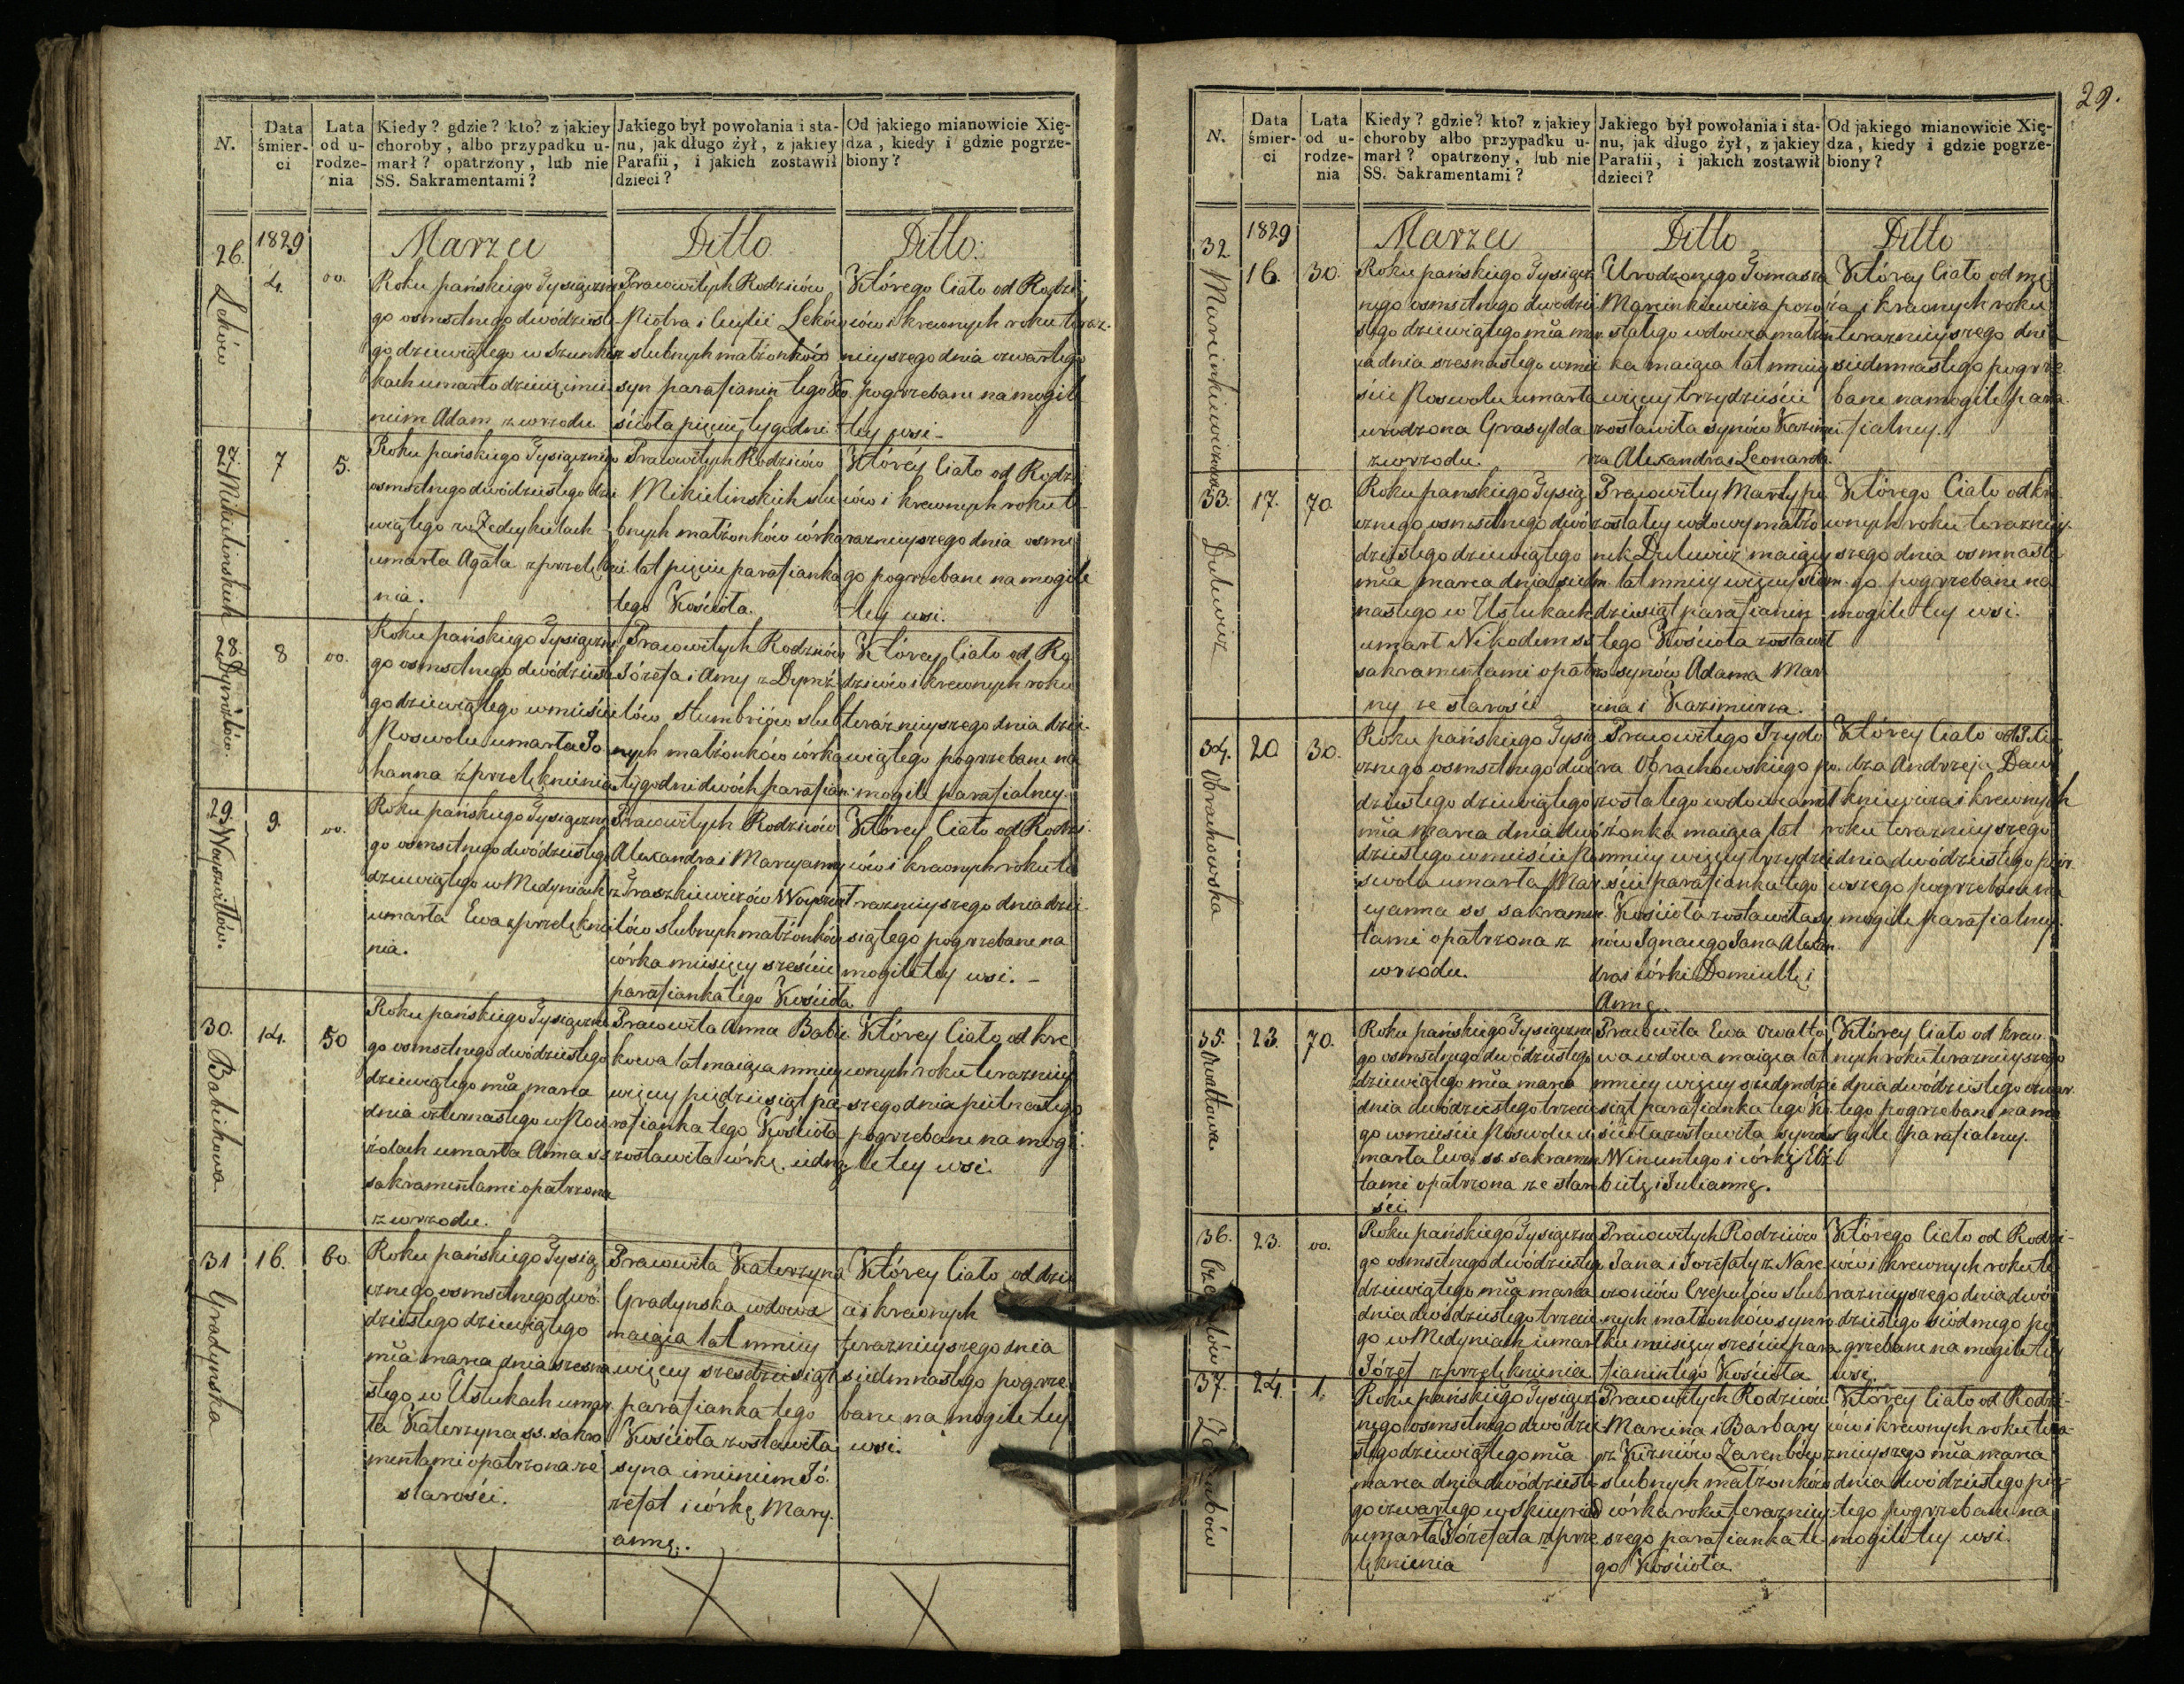 N.
Data śmier-ci
Lata od u-rodze-nia
Kiedy? gdzie? kto? z jakiey
choroby, albo przypadku u-
marł? opatrzony, lub nie
SS. Sakramentami?
Jakiego był powołania i sta-
nu, jak długo żył, z jakiey
Parafii, i jakich zostawił
dzieci?
Od jakiego mianowicie Xię-
dza, kiedy i gdzie pogrze-
biony?
1829
Marca
Ditto
Ditto.
26.
Leków
4.
oo.
Roku pańskiego Tysiączne
go osmsetnego dwódzieste
go dziewiątego w Szunki
kach umarło dziecię imie
niem Adam z wrzodu
Pracowitych Rodziców
Piotra i Cecylii Leków
z slubnych małżonków
syn parafianin tego Ko
ścioła pięciu tygodni
Którego Ciało od Rodzi
ców i krewnych roku teraz-
nieyszego dnia czwartego
pogrzebane na mogile
tey wsi -
27.
Mikielinskich
7
5.
Roku pańskiego Tysiącznego
osmsetnego dwódziestego dzie
wiątego w Zedeykielach
umarła Agata z przelęknie
nia.
Pracowitych Rodziców
Mikielinskich slu
bnych małżonków córka
lat pięciu parafianka
tego Kościoła.
Którey Ciało od Rodzi
ców i krewnych roku te
raznieyszego dnia osme
go pogrzebane na mogile
tey wsi.
28.
8
oo.
Roku pańskiego Tysiączne
go osmsetnego dwódzieste
go dziewiątego w mieście
Poswolu umarła Jo
hanna z przelęknienia
Pracowitych Rodziców
Józefa i Anny z Dymż
elów Stumbrów slub
nych małżonków córka
tygodni dwóch parafian
Którey Ciało od Ro
dziców i krewnych roku
teraznieyszego dnia dzie
wiątego pogrzebane na
mogile parafialney.
29.
Woyszwiłłów.
9.
oo.
Roku pańskiego Tysiączne
go osmsetnego dwódziestego
dziewiątego w Medyniach
umarła Ewa z przelęknie
nia.
Pracowitych Rodziców
Alexandra i Maryanny
z Traszkiewiczów Woyszwi
łłów slubnych małżonków
córka miesięcy sześciu
parafianka tego Kościoła
Którey Ciało od Rodzi
ców i krewnych roku te
raznieyszego dnia dzie
siątego pogrzebane na
mogile tey wsi. -
30.
Babickowa
14.
50
Roku pańskiego Tysiączne
go osmsetnego dwódziestego
dziewiątego mca marca
dnia czternastego w
żolach umarła Anna ss
sakramentami opatrzona
z wrzodu.
Pracowita Anna Babic
kowa lat maiąca mniey
więcey pięćdziesiąt pa
rafianka tego Kościoła
zostawiła córkę iedną
Którey Ciało od kre
wnych roku teraźniey
szego dnia pietnastego
pogrzebane na mogi
le tey wsi.
31
Gradynska
16.
60.
Roku pańskiego Tysią
cznego osmsetnego dwó
dziestego dziewiątego
mca marca dnia szesna
stego w Ustukach umar
ła Katerzyna ss. sakra
mentami opatrzona ze
starości.
Pracowita Katerzyna
Gradynska wdowa
maiąca lat mniey
więcey szesdziesiąt
parafianka tego
Kościoła zostawiła
syna imieniem Jó
zefat i córkę Mary
annę.
Którey Ciało od dzie
ci i krewnych
teraznieyszego dnia
siedmnastego pogrze
bane na mogile tey
wsi.
29.
N.
Data śmier-ci
Lata od u-rodze-nia
Kiedy? gdzie? kto? z jakiey
choroby albo przypadku u-
marł? opatrzony, lub nie
SS. Sakramentami?
Jakiego był powołania i sta-
nu, jak długo żył, z jakiey
Parafii, i jakich zostawił
dzieci?
Od jakiego mianowicie Xię-
dza, kiedy i gdzie pogrze-
biony?
1829
Marca
Ditto
Ditto
32
Marcinkiewiczowa
16.
30.
Roku pańskiego Tysiącz
nego osmsetnego dwódzie
stego dziewiątego mca mar
ca dnia szesnastego w mie
ście Poswolu umarła
urodzona Grasylda
z wrzodu.
Urodzonego Tomasza
Marcinkiewicza pozo
stałego wdowca małżon
ka maiąca lat mniey
więcey trzydzieście
zostawiła synów Kazimie
rza Alexandra i Leonarda.
Którey Ciało od mę
ża i krewnych roku
teraznieyszego dnia
siedmnastego pogrze
bane na mogile para
fialney.
33.
Dulewicz
17.
70.
Roku pańskiego Tysią
cznego osmsetnego dwó
dziestego dziewiątego
mca marca dnia siedm
nastego w Ustukach
umarł Nikodem ss
sakramentami opatrzo
ny ze starości
Pracowitey Marty po
zostałey wdowy małżo
nek Dulewicz maiący
lat mniey więcey siedm
dziesiąt parafianin
tego Kościoła zostawił
synów Adama Mar
cina i Kazimierza.
Którego Ciało od kre
wnych roku teraznie-
szego dnia osmnaste
go pogrzebane na
mogile tey wsi.
34.
Obrachowska
20
30.
Roku pańskiego Tysią
cznego osmsetnego dwó
dziestego dziewiątego
mca marca dnia dwó
dziestego w mieście Po
swolu umarła Mar
cyanna ss sakramen
tami opatrzona z
wrzodu.
Pracowitego Izydo
ra Obrachowskiego po
zostałego wdowca mał
żonka maiąca lat
mniey więcey trzydzie
ści parafianka tego
Kościoła zostawiła sy
nów Ignacego Jana Alexan
dra i córki Domicellę i
Annę.
Którey Ciało od
dza Andrzeja Daw
kniewicza i krewnych
roku teraznieyszego
dnia dwódziestego pier
wszego pogrzebane na
mogile parafialney.
35.
Owałtowa
23.
70.
Roku pańskiego Tysiączne
go osmsetnego dwódziestego
dziewiątego mca marca
dnia dwódziestego trzecie
go w mieście Poswolu u
marła Ewa ss. sakramen
tami opatrzona ze staro
ści.
Pracowita Ewa Owałto
wa wdowa maiąca lat
mniey więcey siedmdzie
siąt parafianka tego Ko
ścioła zostawiła synów
Wincentego i córki Elż
bietę i Juliannę.
Którey Ciało od krew
nych roku teraznieyszego
dnia dwódziestego czwar
tego pogrzebane na mo
gile parafialney.
36.
23.
oo.
Roku pańskiego Tysiączne
go osmsetnego dwódziestego
dziewiątego mca marca
dnia dwódziestego trzecie
go w Medyniach umarł
Józef z przelęknienia
Pracowitych Rodziców
Jana i Jozefaty z Nare
woniów Czepulów slub
nych małżonków synek
miesięcy sześciu para
fianin tego Kościoła
Którego Ciało od Rodzi-
ców i krewnych roku te
raznieyszego dnia dwó
dziestego siódmego po
grzebane na mogile tey
wsi.
37.
24.
1.
Roku pańskiego Tysiącz
nego osmsetnego dwódzie
stego dziewiątego mca
marca dnia dwódzieste
go czwartego w
umarła Józefata z prze
lęknienia
Pracowitych Rodziców
Marcina i Barbary
z Zarembów
slubnych małżonków
córka roku teraznie
szego parafianka te
go Kościoła
Którey Ciało od Rodzi-
ców i krewnych roku tera-
znieyszego mca marca
dnia dwódziestego pią-
tego pogrzebane na
mogile tey wsi.